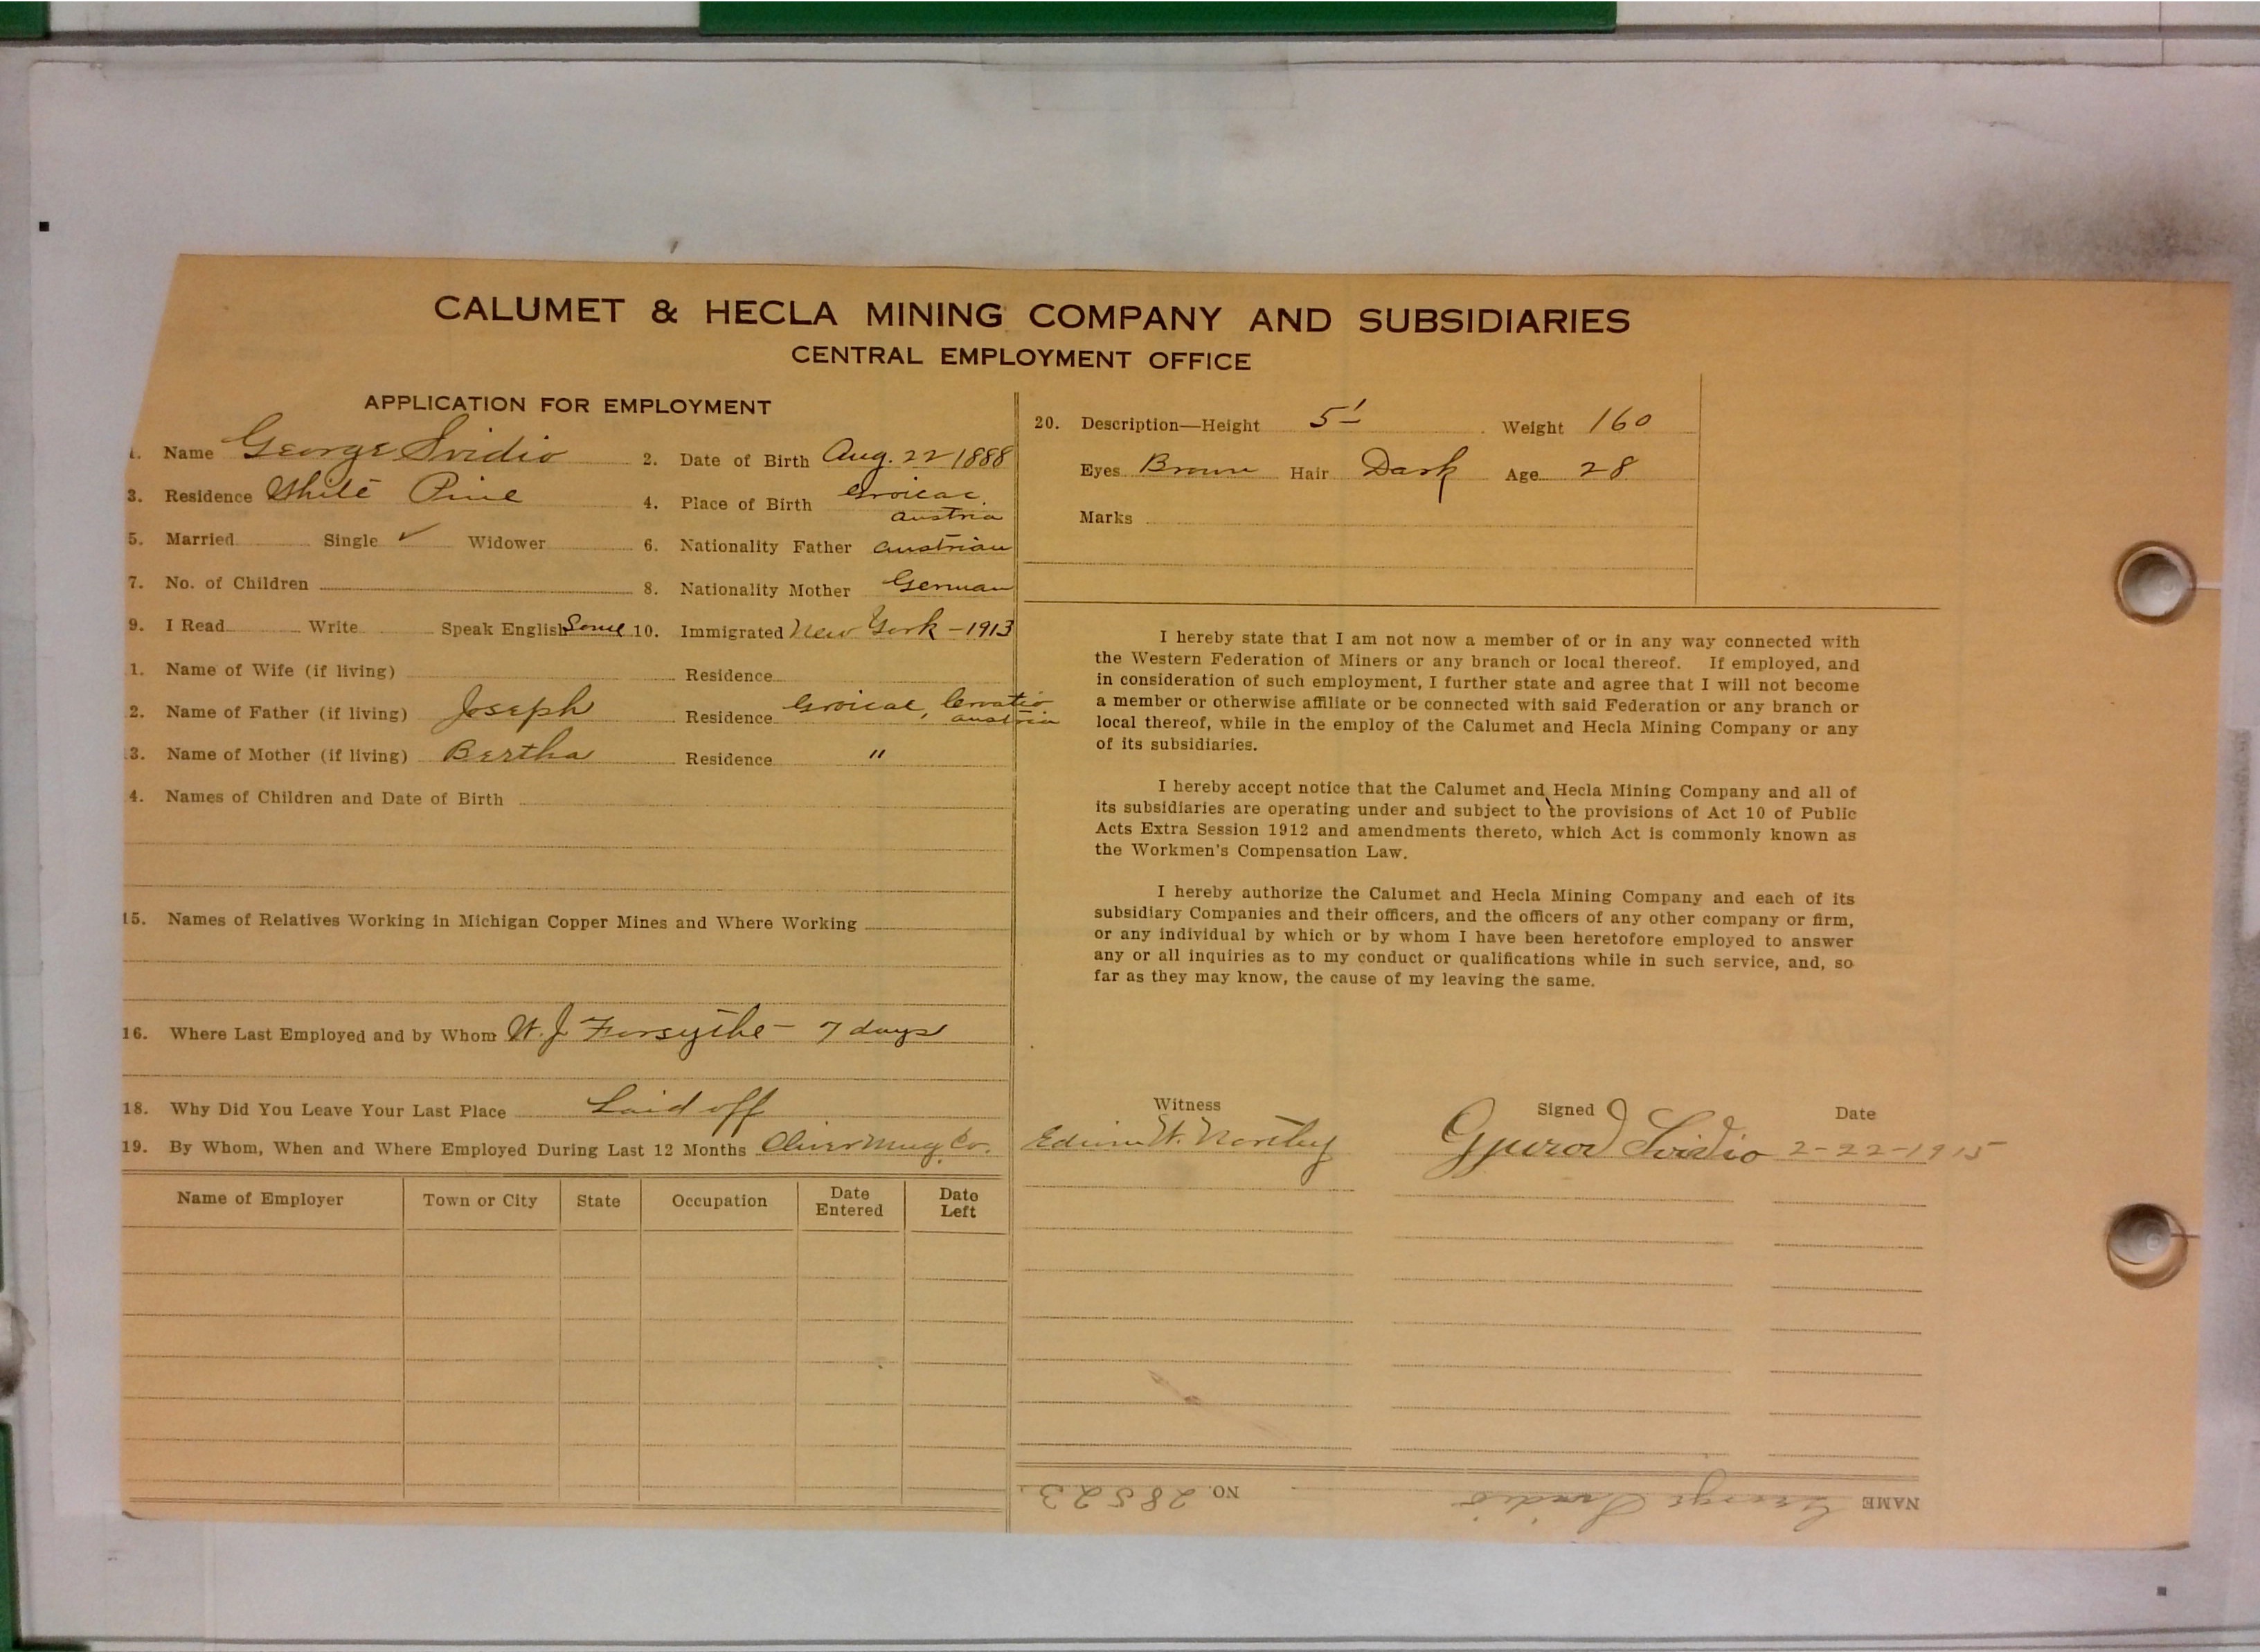 CALUMET & HECLA MINING COMPANY AND SUBSIDIARIES
CENTRAL EMPLOYMENT OFFICE
APPLICATION FOR EMPLOYMENT
1. Name George Svidio 2. Date of Birth Aug. 22 1888
3. Residence White Pine 4. Place of Birth
Austria
5. Married Single ✓ Widower 6. Nationality Father Austrian
7. No. of Children 8. Nationality Mother German
9. I Read Write Speak English Some 10. Immigrated New York - 1913
1. Name of Wife (if living) Residence
2. Name of Father (if living) Joseph Residence
Austria
3. Name of Mother (if living) Bertha Residence "
4. Names of Children and Date of Birth
15. Names of Relatives Working in Michigan Copper Mines and Where Working
16. Where Last Employed and by Whom W. J Forsythe - 7 days
18. Why Did You Leave Your Last Place Laid off
19. By Whom, When and Where Employed During Last 12 Months Oliver Mng Co.
Name of Employer Town or City State Occupation Date Entered Date Left
20. Description—Height 5' Weight 160
Eyes Brown Hair Dark Age 28
Marks
I hereby state that I am not now a member of or in any way connected with
the Western Federation of Miners or any branch or local thereof. If employed, and
in consideration of such employment, I further state and agree that I will not become
a member or otherwise affiliate or be connected with said Federation or any branch or
local thereof, while in the employ of the Calumet and Hecla Mining Company or any
of its subsidiaries.
I hereby accept notice that the Calumet and Hecla Mining Company and all of
its subsidiaries are operating under and subject to the provisions of Act 10 of Public
Acts Extra Session 1912 and amendments thereto, which Act is commonly known as
the Workmen's Compensation Law.
I hereby authorize the Calumet and Hecla Mining Company and each of its
subsidiary Companies and their officers, and the officers of any other company or firm,
or any individual by which or by whom I have been heretofore employed to answer
any or all inquiries as to my conduct or qualifications while in such service, and, so
far as they may know, the cause of my leaving the same.
Witness Signed Date
Edwin W. Svidio 2-22-1915
NAME George Svidio NO. 28523